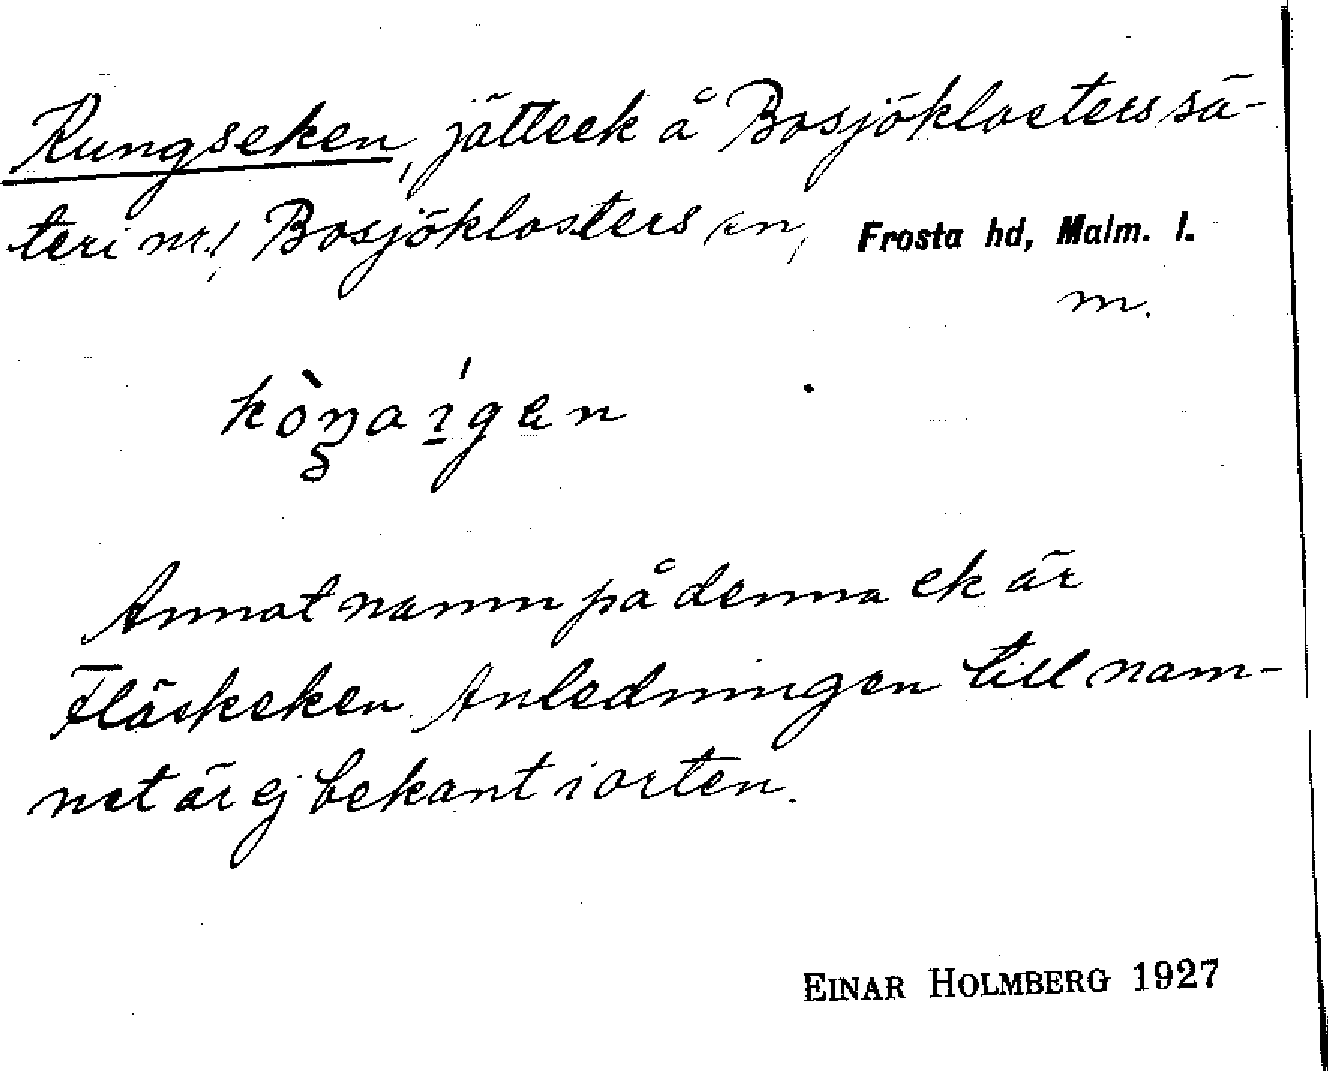 Kungseken, jätteek å Bosjöklosters sä-
teri nr 1, Bosjöklosters sn, Frosta hd, Malm. l.
m.
Annat namn på denna ek är
Fläskeken. Anledningen till nam-
net är ej bekant i orten.
EINAR HOLMBERG 1927